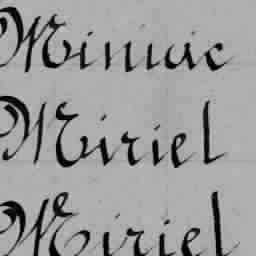 Miniac
Miriel
Miriel